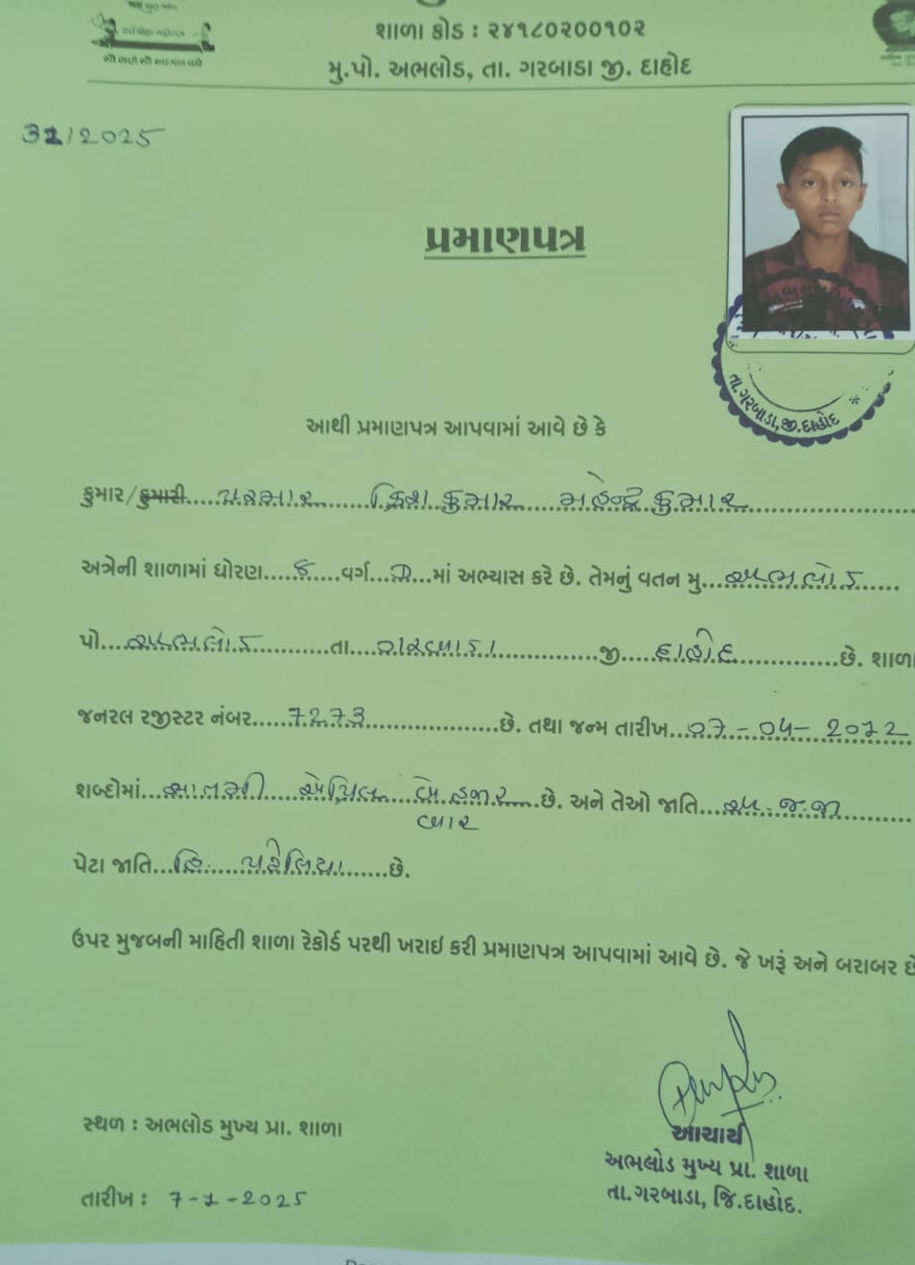 સૌ ભણે સૌ આગળ વધે
શાળા કોડ : ૨૪૧૮૦૨૦૦૧૦૨
મુ.પો. અભલોડ, તા. ગરબાડા જી. દાહોદ
31/2025
પ્રમાણપત્ર
તા.ગરબાડા,જી.દાહોદ *
આથી પ્રમાણપત્ર આપવામાં આવે છે કે
કુમાર/કુમારી....પરમાર ક્રિશકુમાર મહેન્દ્રકુમાર
અત્રેની શાળામાં ધોરણ.....૬....વર્ગ......માં અભ્યાસ કરે છે. તેમનું વતન મુ...અભલોડ
પો....અભલોડ............તા....ગરબાડા............જી....દાહોદ............છે. શાળા
જનરલ રજીસ્ટર નંબર.....7273...............છે. તથા જન્મ તારીખ...07-04-2012
શબ્દોમાં...સાતમી એપ્રિલ બે હજાર....છે. અને તેઓ જાતિ...અ.જ.જા
બાર
પેટા જાતિ...હિ. પટેલિયા......છે.
ઉપર મુજબની માહિતી શાળા રેકોર્ડ પરથી ખરાઇ કરી પ્રમાણપત્ર આપવામાં આવે છે. જે ખરૂં અને બરાબર છે
સ્થળ : અભલોડ મુખ્ય પ્રા. શાળા
આચાર્ય
અભલોડ મુખ્ય પ્રા. શાળા
તા.ગરબાડા, જિ.દાહોદ.
તારીખ : 7-1-2025